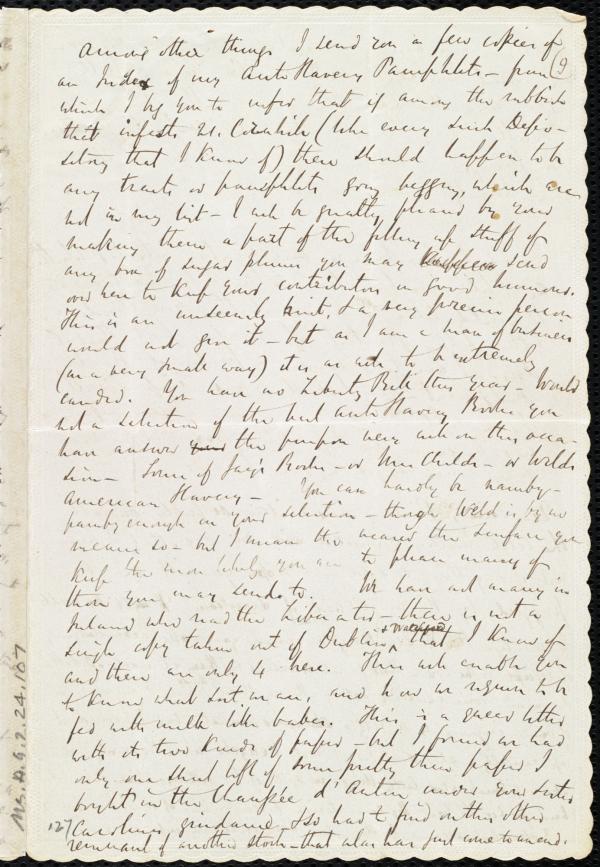 Among other things I send you a few copies of (9
an Index of my Anti Slavery Pamphlets – from
which I beg you to infer that if among the rubbish
that infests 21. Cornhill (like every such Depo-
sitory that I know of) there should happen to be
any tracts or pamphlets going begging, which are
not in my list – I will be greatly pleased by your
making them a part of the filling up stuff of
any box of sugar plums you may send
over here to keep your contributors in good humour.
This is an unseemly hint, & a very precise person
would not give it – but as I am a man of business
(in a very small way) it is as well to be extremely
candid. You have no Liberty Bell this year – Would
not a selection of the best Anti Slavery Books you
have answer your the purpose very well on this occa-
sion – Some of Jay's Books – or Mrs Childs – or Welds
American Slavery – You can hardly be namby-
pamby enough in your selection – though Weld is by no
means so – but I mean the nearer the surface you
keep the more likely you are to please many of
those you may send to. We have not many in
Ireland who read the Liberator – there is not a
single copy taken out of Dublin & that I know of
and there are only 4 here. This will enable you
to know what sort we are, and how we require to be
fed with milk like babes. This is a queer letter
with its two kinds of paper – but I found we had
only one sheet left of some pretty thin paper I
bought in the Chaussée d'Antin under your sister
Caroline's guidance, & so had to find out this other
remnant of another stock – that also has just come to an end.
127
Ms. A. 9. 2. 24, 107